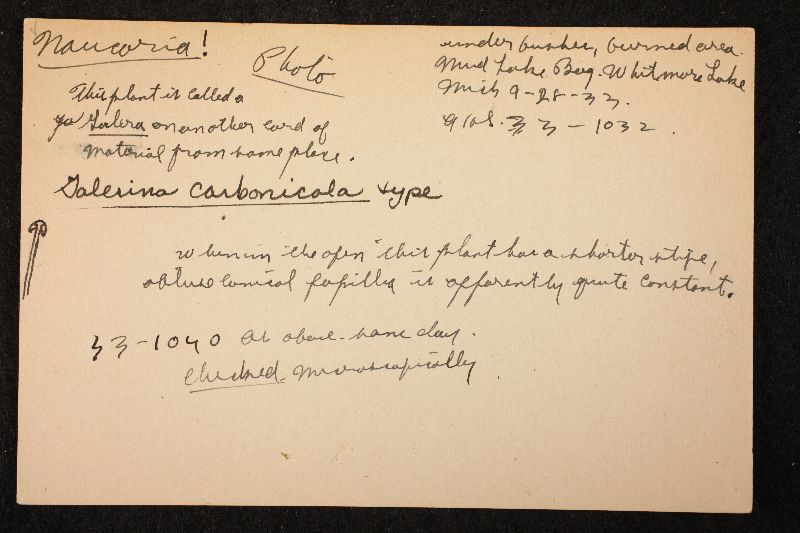 Naucoria!
Photo
under bushes, burned area.
Mud Lake Bog. Whitmore Lake
Mich 9-28-33.
33-1032.
This plant is called a
Galera on another card of
material from same place.
Galerina carbonicola type
when in the open this plant has a shorter stipe,
obtuse conical papilla is apparently quite constant.
33-1040 as above - same day.
checked microscopically